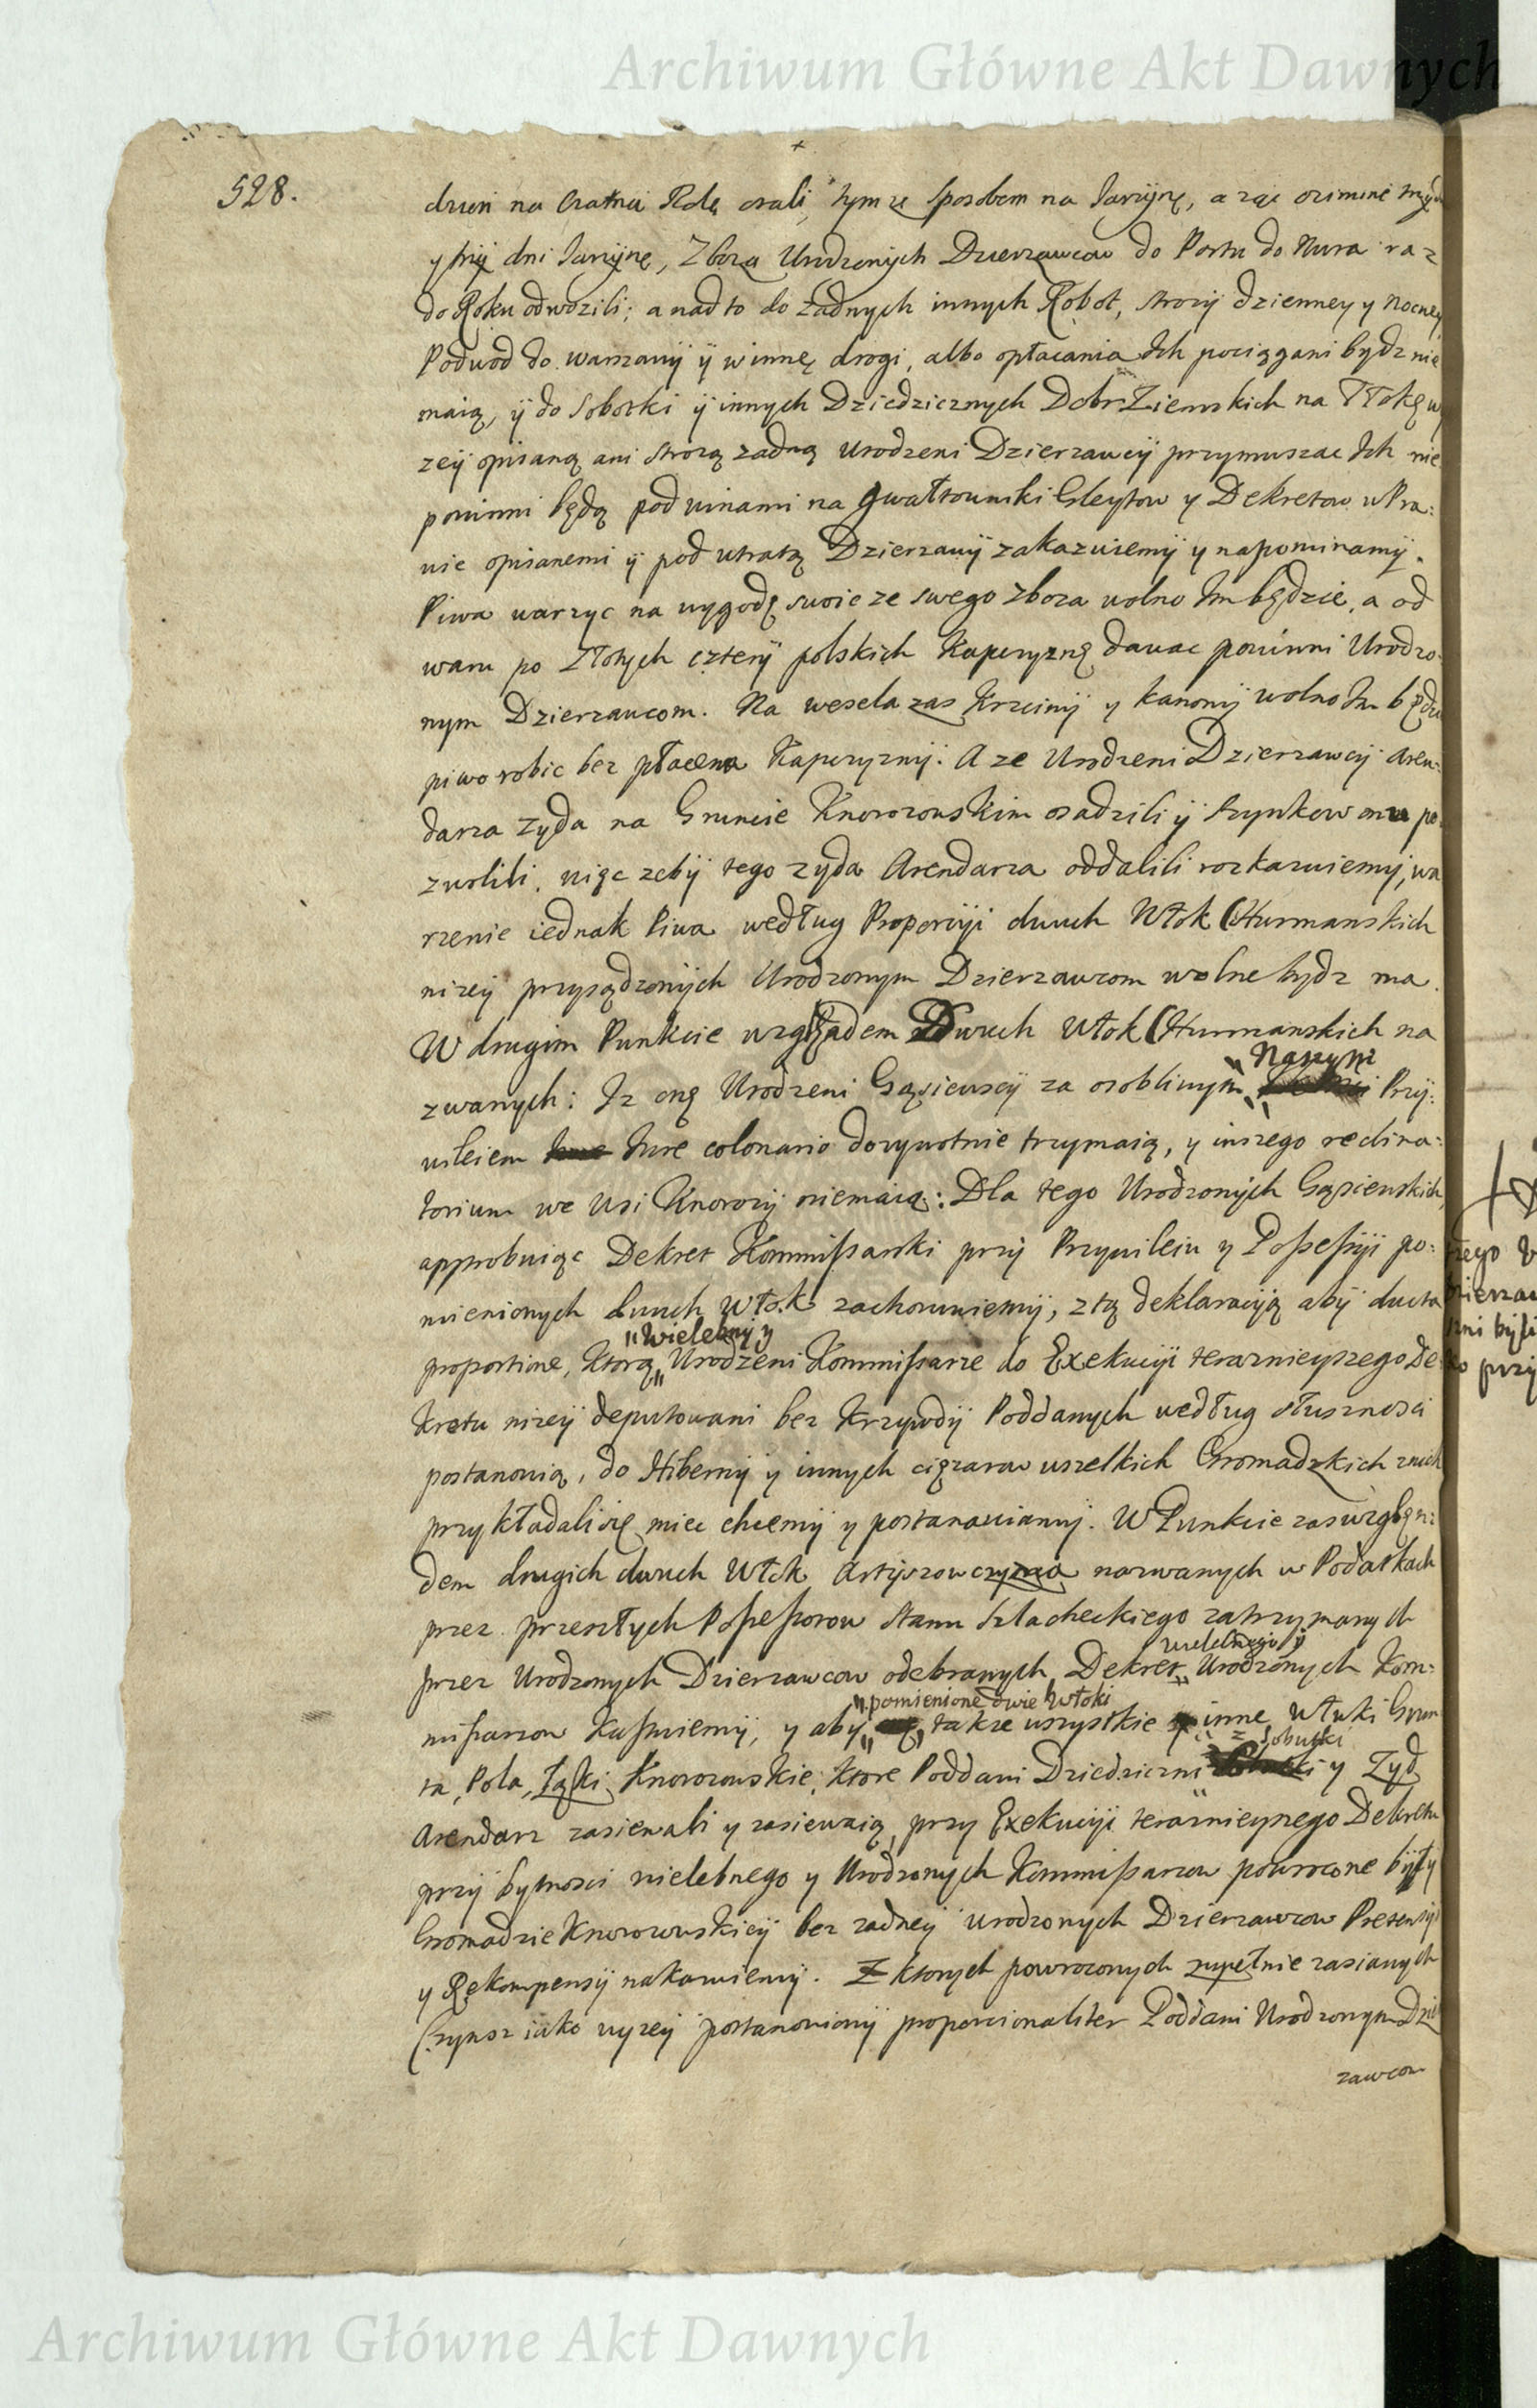 Archiwum Główne Akt Dawnych
528.
dzień na Oraniu Rolę orali, tymze sposobem na Jarzynę, a żąć oziminę
y trzy dni Jarzynę, Zboza Urodzonych Dzierzawcow do Portu do Nura raz
do Roku odwozili; a nad to do żadnych innych Robot, strozy dzienney y nocney
Podwod do warszawy y w innę drogi, albo opłacania Ich pociągani bydz nie
maią, y do Sobotki y innych Dziedzicznych Dobr Ziemskich na Tłokę wy
zey opisaną ani strozą zadną Urodzeni Dzierzawcy przymuszac Ich nie
powinni będą pod winami na gwałtowniki Gleytow y Dekretow w Pra:
wie opisanemi y pod utratą Dzierzawy zakazuiemy y napominamy.
Piwa warzyc na wygodę swoię ze swego zboza wolno Im będzie, a od
waru po Złotych cztery polskich Kapeyznę dawac powinni Urodzo:
nym Dzierzawcom. Na wesela zas Krzciny y kanony wolno Im będzie
piwo robic bez płacena Kapeyzny. A ze Urodzeni Dzierzawcy Aren:
darza zyda na Gruncie Knorozowskim osadzili y szynkow mu po:
zwolili, więc zeby tego zyda Arendarza oddalili rozkazuiemy, wa
rzenie iednak Piwa według Proporcyi dwuch Włok Hurmanskich
nizey przysądzonych Urodzonym Dzierzawcom wolne bydz ma.
W drugim Punkcie względem Dwuch Włok Hurmanskich na
Naszym
zwanych: Iz onę Urodzeni Gąsiewscy za osobliwym Przy:
wileiem Iure colonario dozywotnie trzymaią, y inszego reclina:
torium we wsi Knorozy niemaią: Dla tego Urodzonych Gąsiewskich,
approbuiąc Dekret Kommissarski przy Przywileiu y Possessyi po:
mienionych dwuch Włok zachowuiemy, z tą deklaracyią aby ducta
"Wielebny y
proportione, ktorą Urodzeni Kommissarze do Exekucyi teraznieyszego De
kretu nizey deputowani bez krzywdy Poddanych według słusznosci
postanowią, do Hiberny y innych cięzarow wszelkich Gromadzkich z nich
przykładali się miec chcemy y postanawiamy. W Punkcie zas wzglęn:
dem drugich dwuch Włok Artyszowczyzna nazwanych w Podatkach
przez przeszłych Possessorow stanu szlacheckiego zatrzymanych
wielebnego y
przez Urodzonych Dzierzawcow odebranych, Dekret Urodzonych Kom:
"pomienione dwie Włoki
missarzow Kassuiemy, y aby takze wszystkie inne Włuki Grun
z Sobutki
ta, Pola, Łąki Knorozowskie, ktore Poddani Dziedziczni y Zyd
Arendarz zasiewali y zasiewaią, przy Exekucyi teraznieyszego Dekretu
przy bytnosci wielebnego y Urodzonych Kommissarzow powrocone były
Gromadzie Knorozowskiey bez zadney urodzonych Dzierzawcow Pretensyi
y Rękompensy nakazuiemy. Z ktorych powroconych zupełnie zasianych
Czynsz iako wyzey postanowiony proporcionaliter Poddani Urodzonym Dzie
zawcom
Archiwum Główne Akt Dawnych